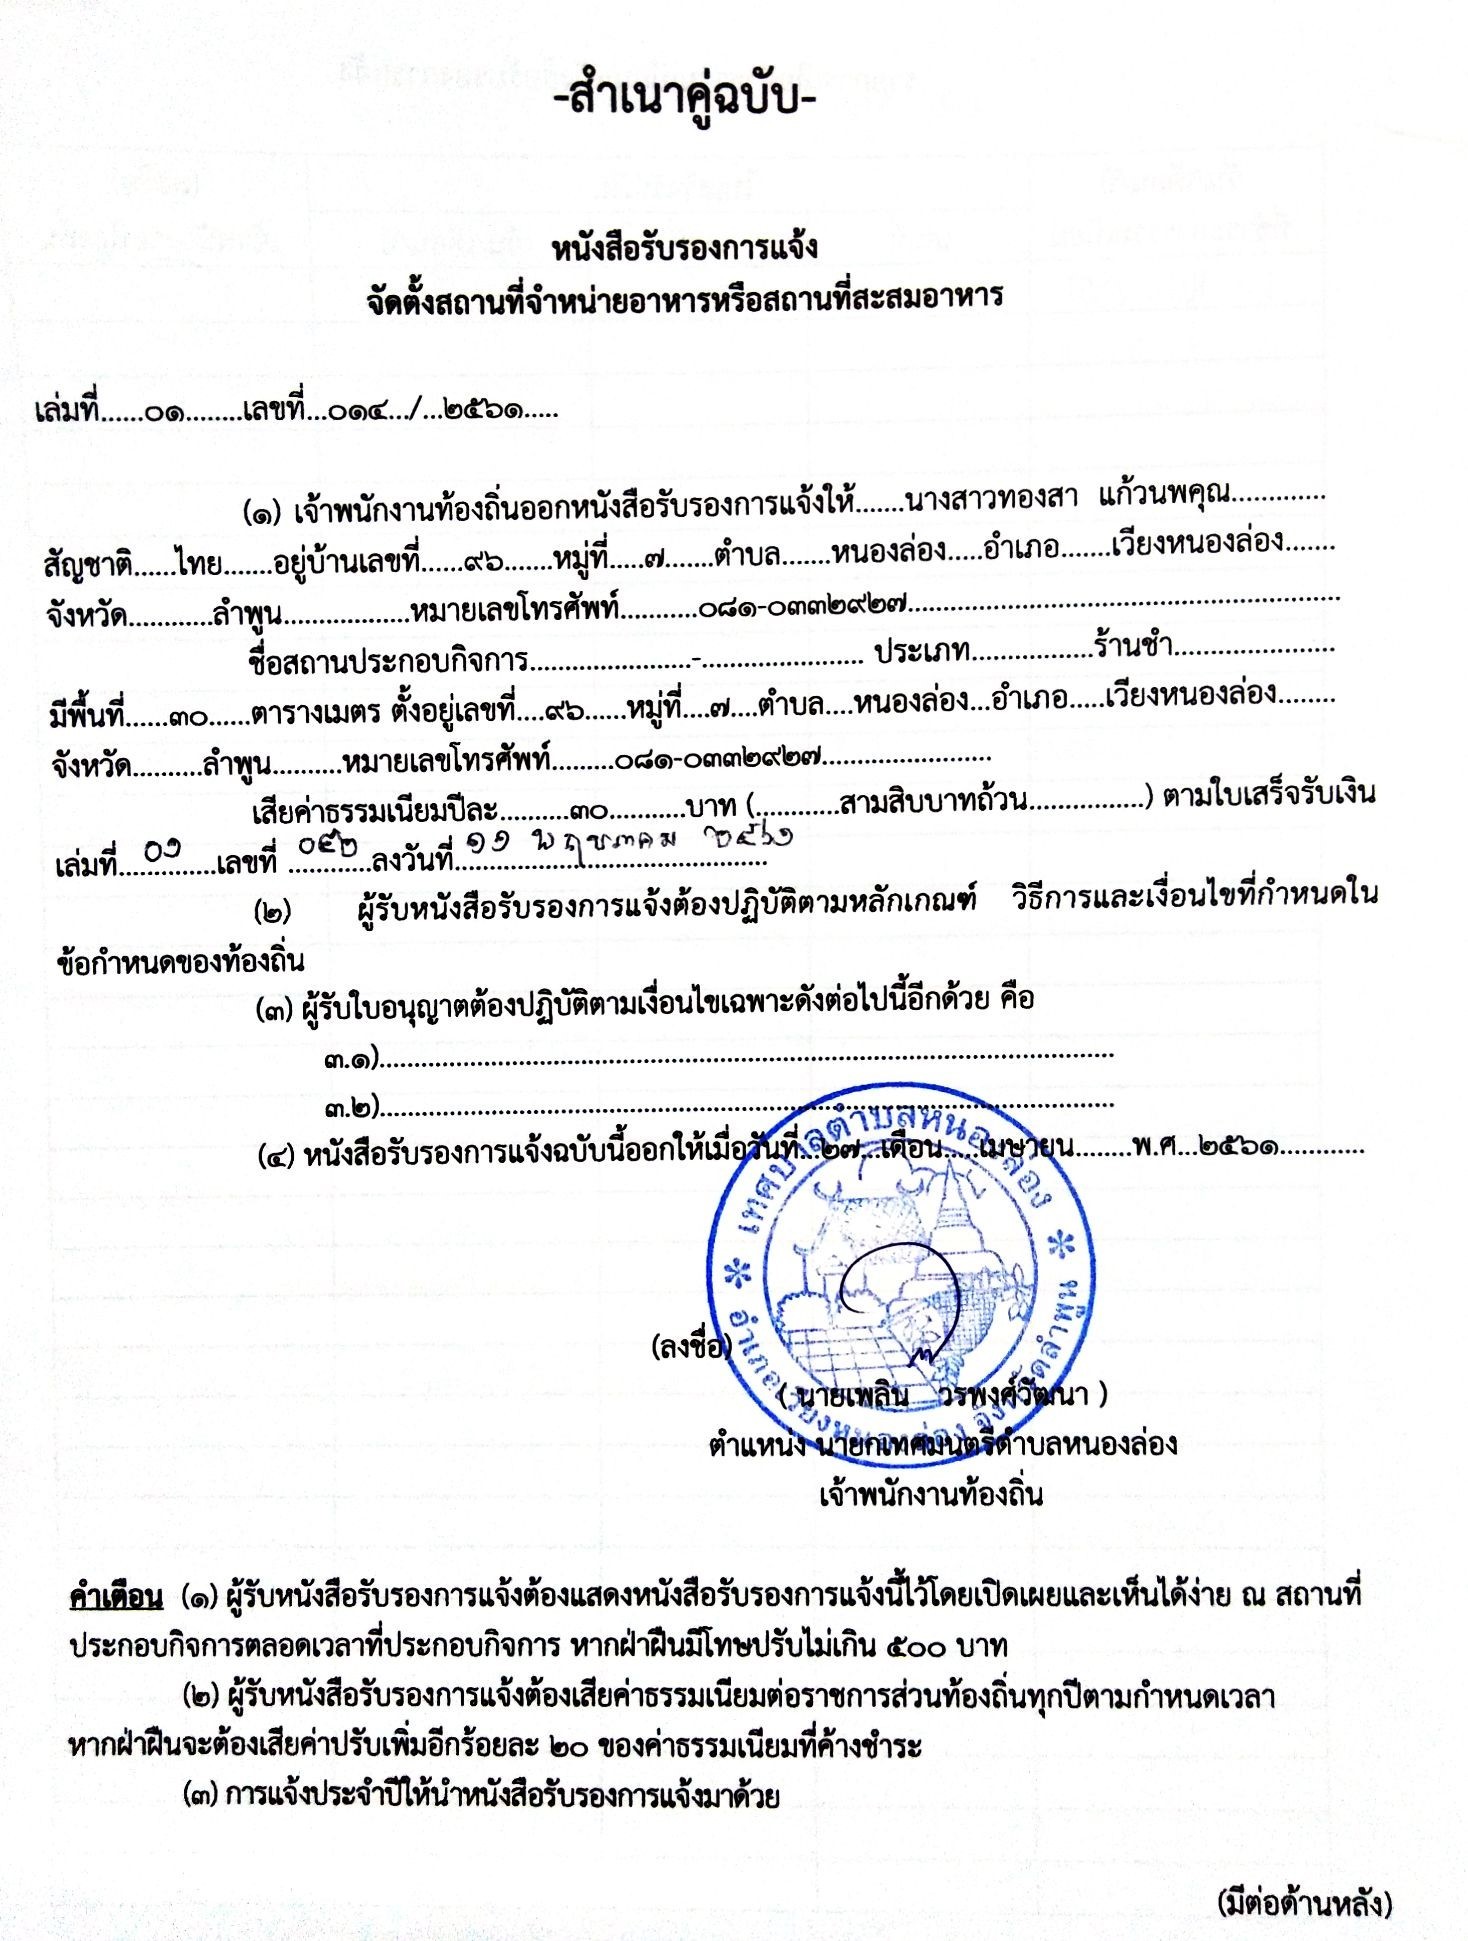 -สำเนาคู่ฉบับ-
หนังสือรับรองการแจ้ง
จัดตั้งสถานที่จำหน่ายอาหารหรือสถานที่สะสมอาหาร
เล่มที่......๐๑........เลขที่...๐๑๔.../...๒๕๖๑.....
(๑) เจ้าพนักงานท้องถิ่นออกหนังสือรับรองการแจ้งให้.......นางสาวทองสา แก้วนพคุณ.............
สัญชาติ......ไทย.......อยู่บ้านเลขที่......๙๖.......หมู่ที่.....๗.......ตำบล.......หนองล่อง.....อำเภอ.......เวียงหนองล่อง.......
จังหวัด............ลำพูน..................หมายเลขโทรศัพท์...........๐๘๑-๐๓๓๒๙๒๗..............................................................
ชื่อสถานประกอบกิจการ.......................-....................... ประเภท.................ร้านชำ.......................
มีพื้นที่......๓๐......ตารางเมตร ตั้งอยู่เลขที่....๙๖......หมู่ที่....๗....ตำบล....หนองล่อง...อำเภอ.....เวียงหนองล่อง........
จังหวัด..........ลำพูน..........หมายเลขโทรศัพท์.........๐๘๑-๐๓๓๒๙๒๗........................
เสียค่าธรรมเนียมปีละ..........๓๐...........บาท (............สามสิบบาทถ้วน................) ตามใบเสร็จรับเงิน
เล่มที่....๐๑....เลขที่ ๐๕๒ ลงวันที่ ๑๑ พฤษภาคม ๒๕๖๑
(๒) ผู้รับหนังสือรับรองการแจ้งต้องปฏิบัติตามหลักเกณฑ์ วิธีการและเงื่อนไขที่กำหนดใน
ข้อกำหนดของท้องถิ่น
(๓) ผู้รับใบอนุญาตต้องปฏิบัติตามเงื่อนไขเฉพาะดังต่อไปนี้อีกด้วย คือ
๓.๑)..........................................................................................................
๓.๒)..........................................................................................................
(๔) หนังสือรับรองการแจ้งฉบับนี้ออกให้เมื่อวันที่...๒๗...เดือน.....เมษายน........พ.ศ...๒๕๖๑............
เทศบาลตำบลหนองล่อง
อำเภอเวียงหนองล่อง จังหวัดลำพูน
(ลงชื่อ)
( นายเพลิน วรพงศ์วัฒนา )
ตำแหน่ง นายกเทศมนตรีตำบลหนองล่อง
เจ้าพนักงานท้องถิ่น
คำเตือน (๑) ผู้รับหนังสือรับรองการแจ้งต้องแสดงหนังสือรับรองการแจ้งนี้ไว้โดยเปิดเผยและเห็นได้ง่าย ณ สถานที่
ประกอบกิจการตลอดเวลาที่ประกอบกิจการ หากฝ่าฝืนมีโทษปรับไม่เกิน ๕๐๐ บาท
(๒) ผู้รับหนังสือรับรองการแจ้งต้องเสียค่าธรรมเนียมต่อราชการส่วนท้องถิ่นทุกปีตามกำหนดเวลา
หากฝ่าฝืนจะต้องเสียค่าปรับเพิ่มอีกร้อยละ ๒๐ ของค่าธรรมเนียมที่ค้างชำระ
(๓) การแจ้งประจำปีให้นำหนังสือรับรองการแจ้งมาด้วย
(มีต่อด้านหลัง)